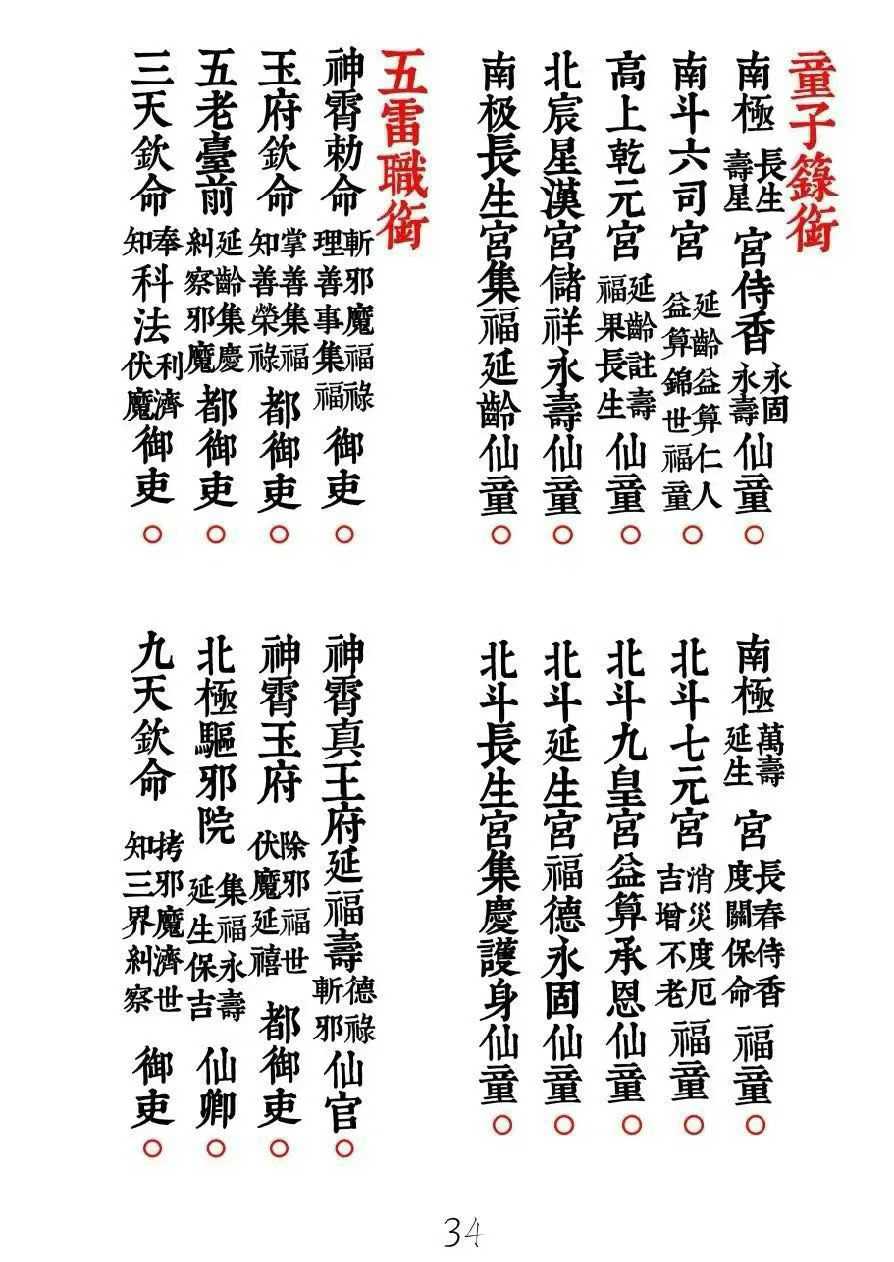 童子籙銜
南極長生壽星宮侍香永固永壽仙童○
南斗六司宮延齡益算仁人益算錦世福童○
高上乾元宮延齡註壽福果長生仙童○
北宸星漢宮儲祥永壽仙童○
南极長生宮集福延齡仙童○
南極萬壽延生宮長春侍香度關保命福童○
北斗七元宮消災度厄吉增不老福童○
北斗九皇宮益算承恩仙童○
北斗延生宮福德永固仙童○
北斗長生宮集慶護身仙童○
五雷職銜
神霄勅命斬邪魔福祿理善事集福御吏○
玉府欽命掌善集福知善榮祿都御吏○
五老臺前延齡集慶糾察邪魔都御吏○
三天欽命奉知科法利濟伏魔御吏○
神霄真王府延福壽德祿斬邪仙官○
神霄玉府除邪福世伏魔延禧都御吏○
北極驅邪院集福永壽延生保吉仙卿○
九天欽命拷邪魔濟世知三界糾察御吏○
34